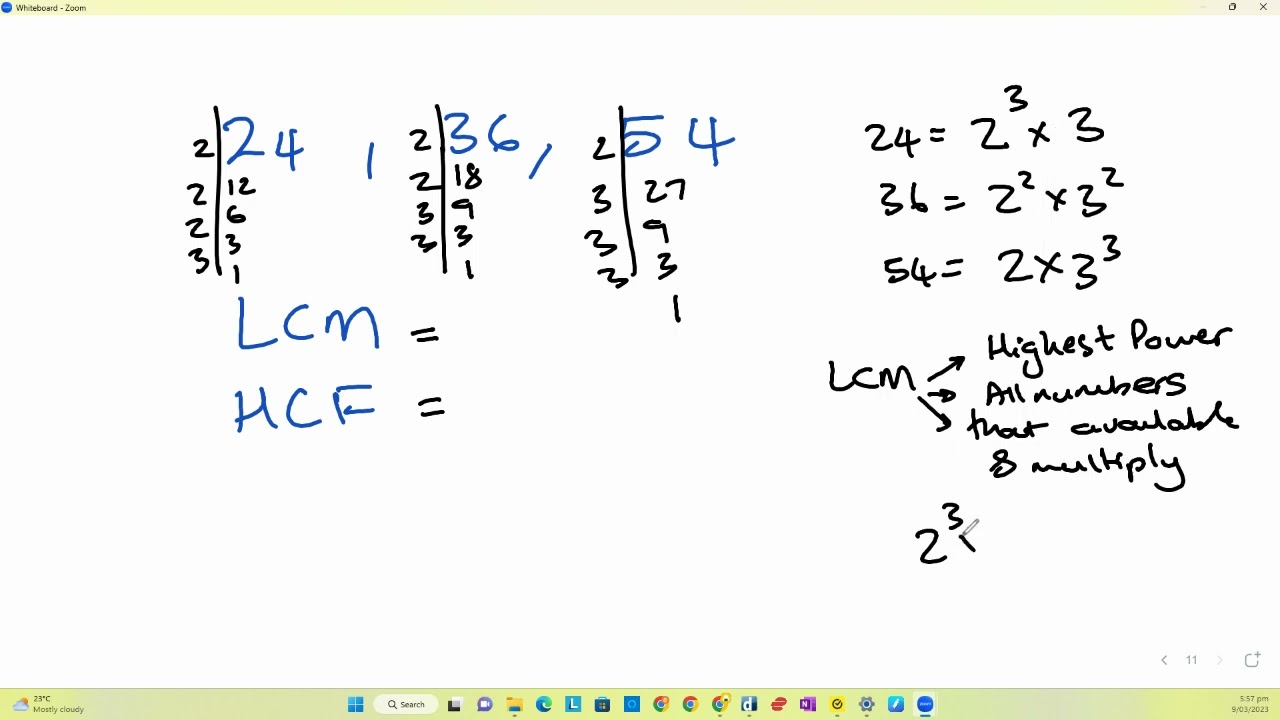 Whiteboard - Zoom
24 , 36 , 54
2 2 2
2 12 2 18 3 27
2 6 3 9 3 9
3 3 3 3 3 3
1 1 1
LCM =
HCF =
24 = 2³ × 3
36 = 2² × 3²
54 = 2 × 3³
LCM → Highest Power
→ All numbers
that available
& multiply
2³
11
23°C
Mostly cloudy
Search
5:57 pm
9/03/2023